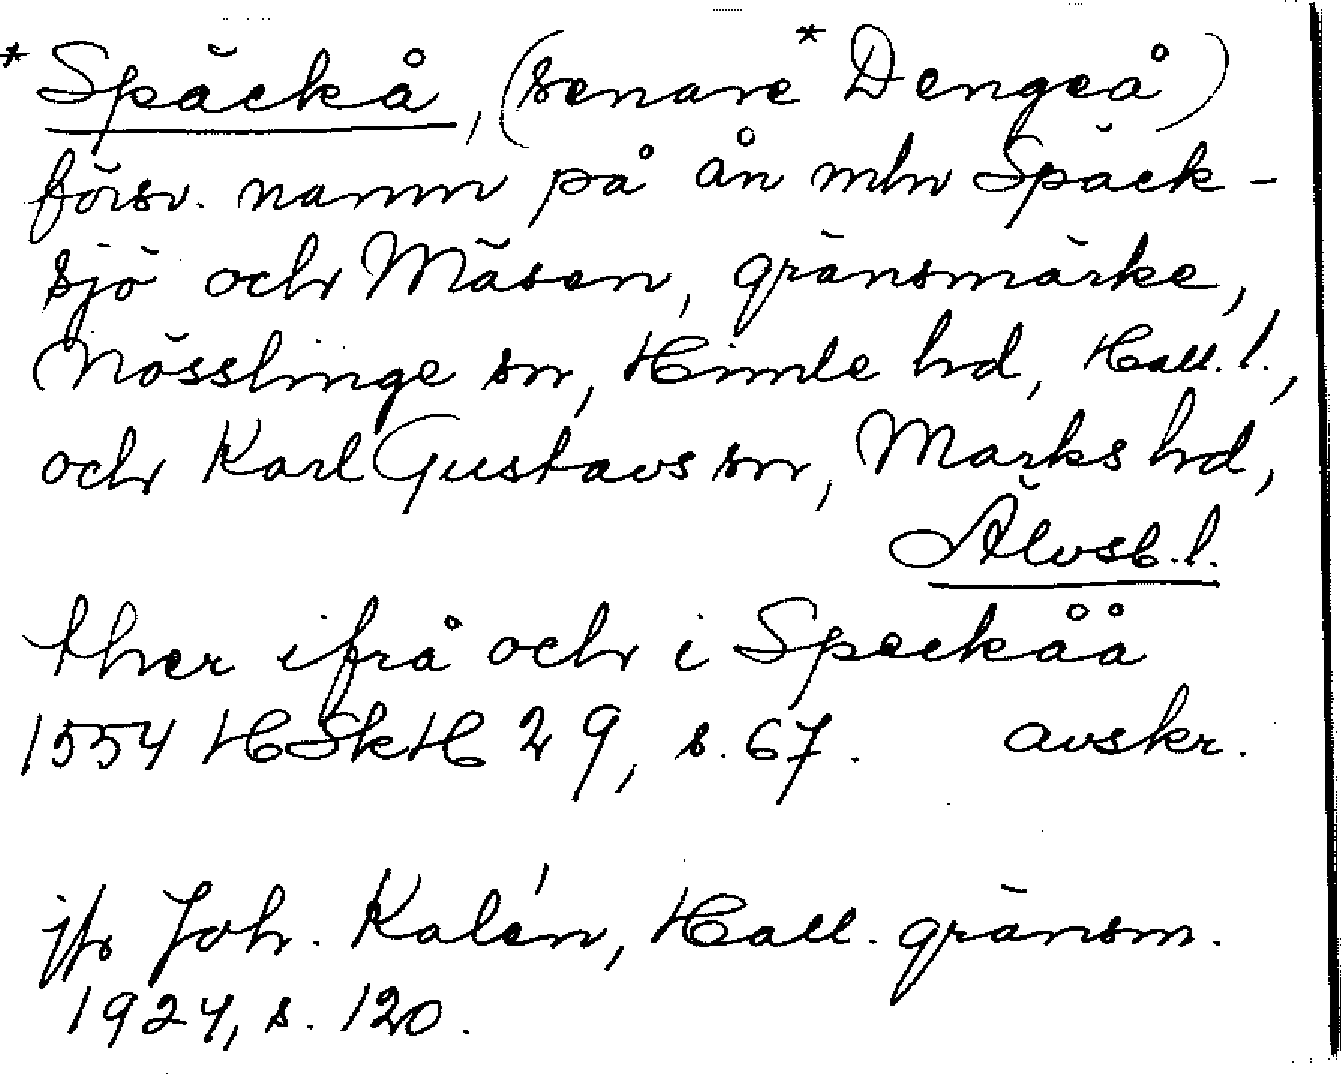 *Späckå, (senare *Dengeå)
försv. namn på ån mln Späck-
sjö och Mäsen, gränsmärke,
Nösslinge sn, Himle hd, Hall. l.,
och Karl Gustavs sn, Marks hd,
Älvsb. l.
ther ifrå och i Speckåå
1554 HSkH 29, s. 67. avskr.
jfr Joh. Kalén, Hall. gränsm.
1924, s. 120.